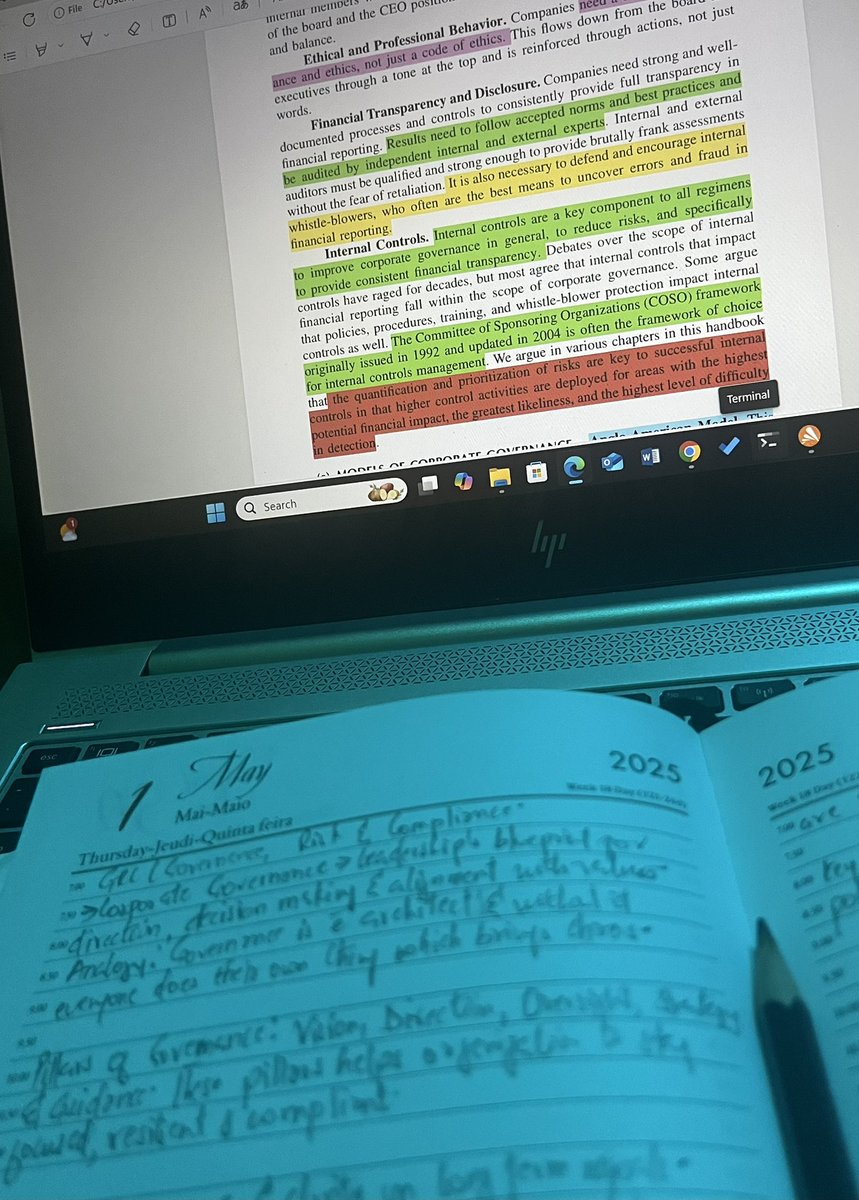 File
C:/User
aあ
internal members
of the board and the CEO position
and balance.
Ethical and Professional Behavior. Companies need
ance and ethics, not just a code of ethics. This flows down from the board
executives through a tone at the top and is reinforced through actions, not just
words.
Financial Transparency and Disclosure. Companies need strong and well-
documented processes and controls to consistently provide full transparency in
financial reporting. Results need to follow accepted norms and best practices and
be audited by independent internal and external experts. Internal and external
auditors must be qualified and strong enough to provide brutally frank assessments
without the fear of retaliation. It is also necessary to defend and encourage internal
whistle-blowers, who often are the best means to uncover errors and fraud in
financial reporting.
Internal Controls. Internal controls are a key component to all regimens
to improve corporate governance in general, to reduce risks, and specifically
to provide consistent financial transparency. Debates over the scope of internal
controls have raged for decades, but most agree that internal controls that impact
financial reporting fall within the scope of corporate governance. Some argue
that policies, procedures, training, and whistle-blower protection impact internal
controls as well. The Committee of Sponsoring Organizations (COSO) framework
originally issued in 1992 and updated in 2004 is often the framework of choice
for internal controls management. We argue in various chapters in this handbook
that the quantification and prioritization of risks are key to successful internal
controls in that higher control activities are deployed for areas with the highest
potential financial impact, the greatest likeliness, and the highest level of difficulty
in detection.
Terminal
MODELS OF CORPORATE GOVERNANCE Anglo-American Model. This
Search
hp
esc
1 May 2025
Mai-Maio
Thursday-Jeudi-Quinta feira
GRC (Governance, Risk & Compliance.
Corporate Governance → leadership's blueprint for
direction, decision making & alignment with values
Analogy: Governance is architect & without it
everyone does their own thing which brings chaos.
Pillars of Governance: Vision, Direction, Oversight, Strategy
& Guidance. These pillars helps organization to stay
focused, resilient & compliant.
on long term
2025
are
key